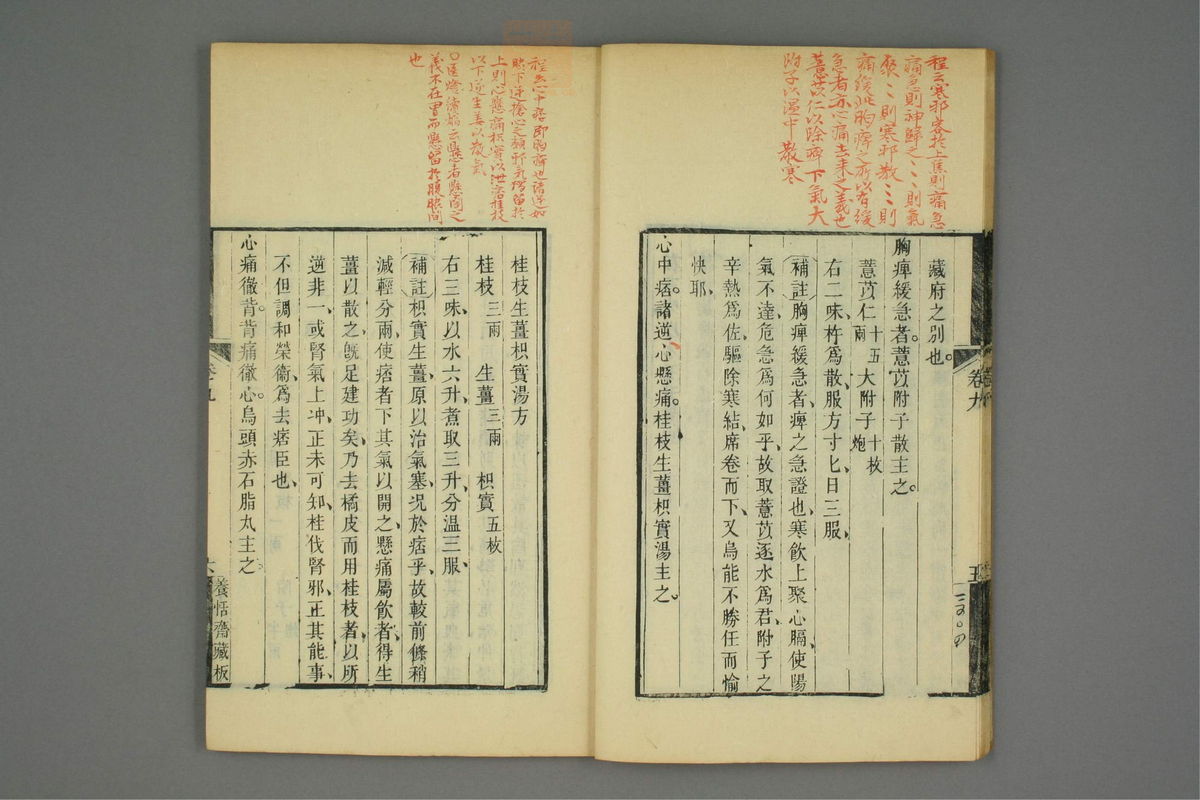 程云寒邪客於上焦則痛急
痛急則神歸之〻則氣
聚〻則寒邪散〻〻則
痛緩此胸痺之所以有緩
急者亦心痛去來之義也
薏苡仁以除痺下氣大
附子以温中散寒
藏府之别也
胸痺緩急者薏苡附子散主之
薏苡仁十五兩 大附子十枚炮
右二味杵爲散服方寸匕日三服
補註胸痺緩急者痺之急證也寒飲上聚心膈使陽
氣不達危急爲何如乎故取薏苡逐水爲君附子之
辛熱爲佐驅除寒結席卷而下又烏能不勝任而愉
快耶
心中痞諸逆心懸痛桂枝生薑枳實湯主之
卷九
五
程云心中痞即胸痺也諸逆如
脇下逆搶心之類邪氣獨留於
上則心懸痛枳實以泄痞桂枝
以下逆生姜以散氣
義不在胃而懸留於腹脇間
也
桂枝生薑枳實湯方
桂枝三兩 生薑三兩 枳實五枚
右三味以水六升煮取三升分温三服
補註枳實生薑原以治氣塞况於痞乎故較前條稍
減輕分兩使痞者下其氣以開之懸痛屬飲者得生
薑以散之旣足建功矣乃去橘皮而用桂枝者以所
逆非一或腎氣上冲正未可知桂伐腎邪正其能事
不但調和榮衞爲去痞臣也
心痛徹背背痛徹心烏頭赤石脂丸主之
卷九
六
養恬齋藏板